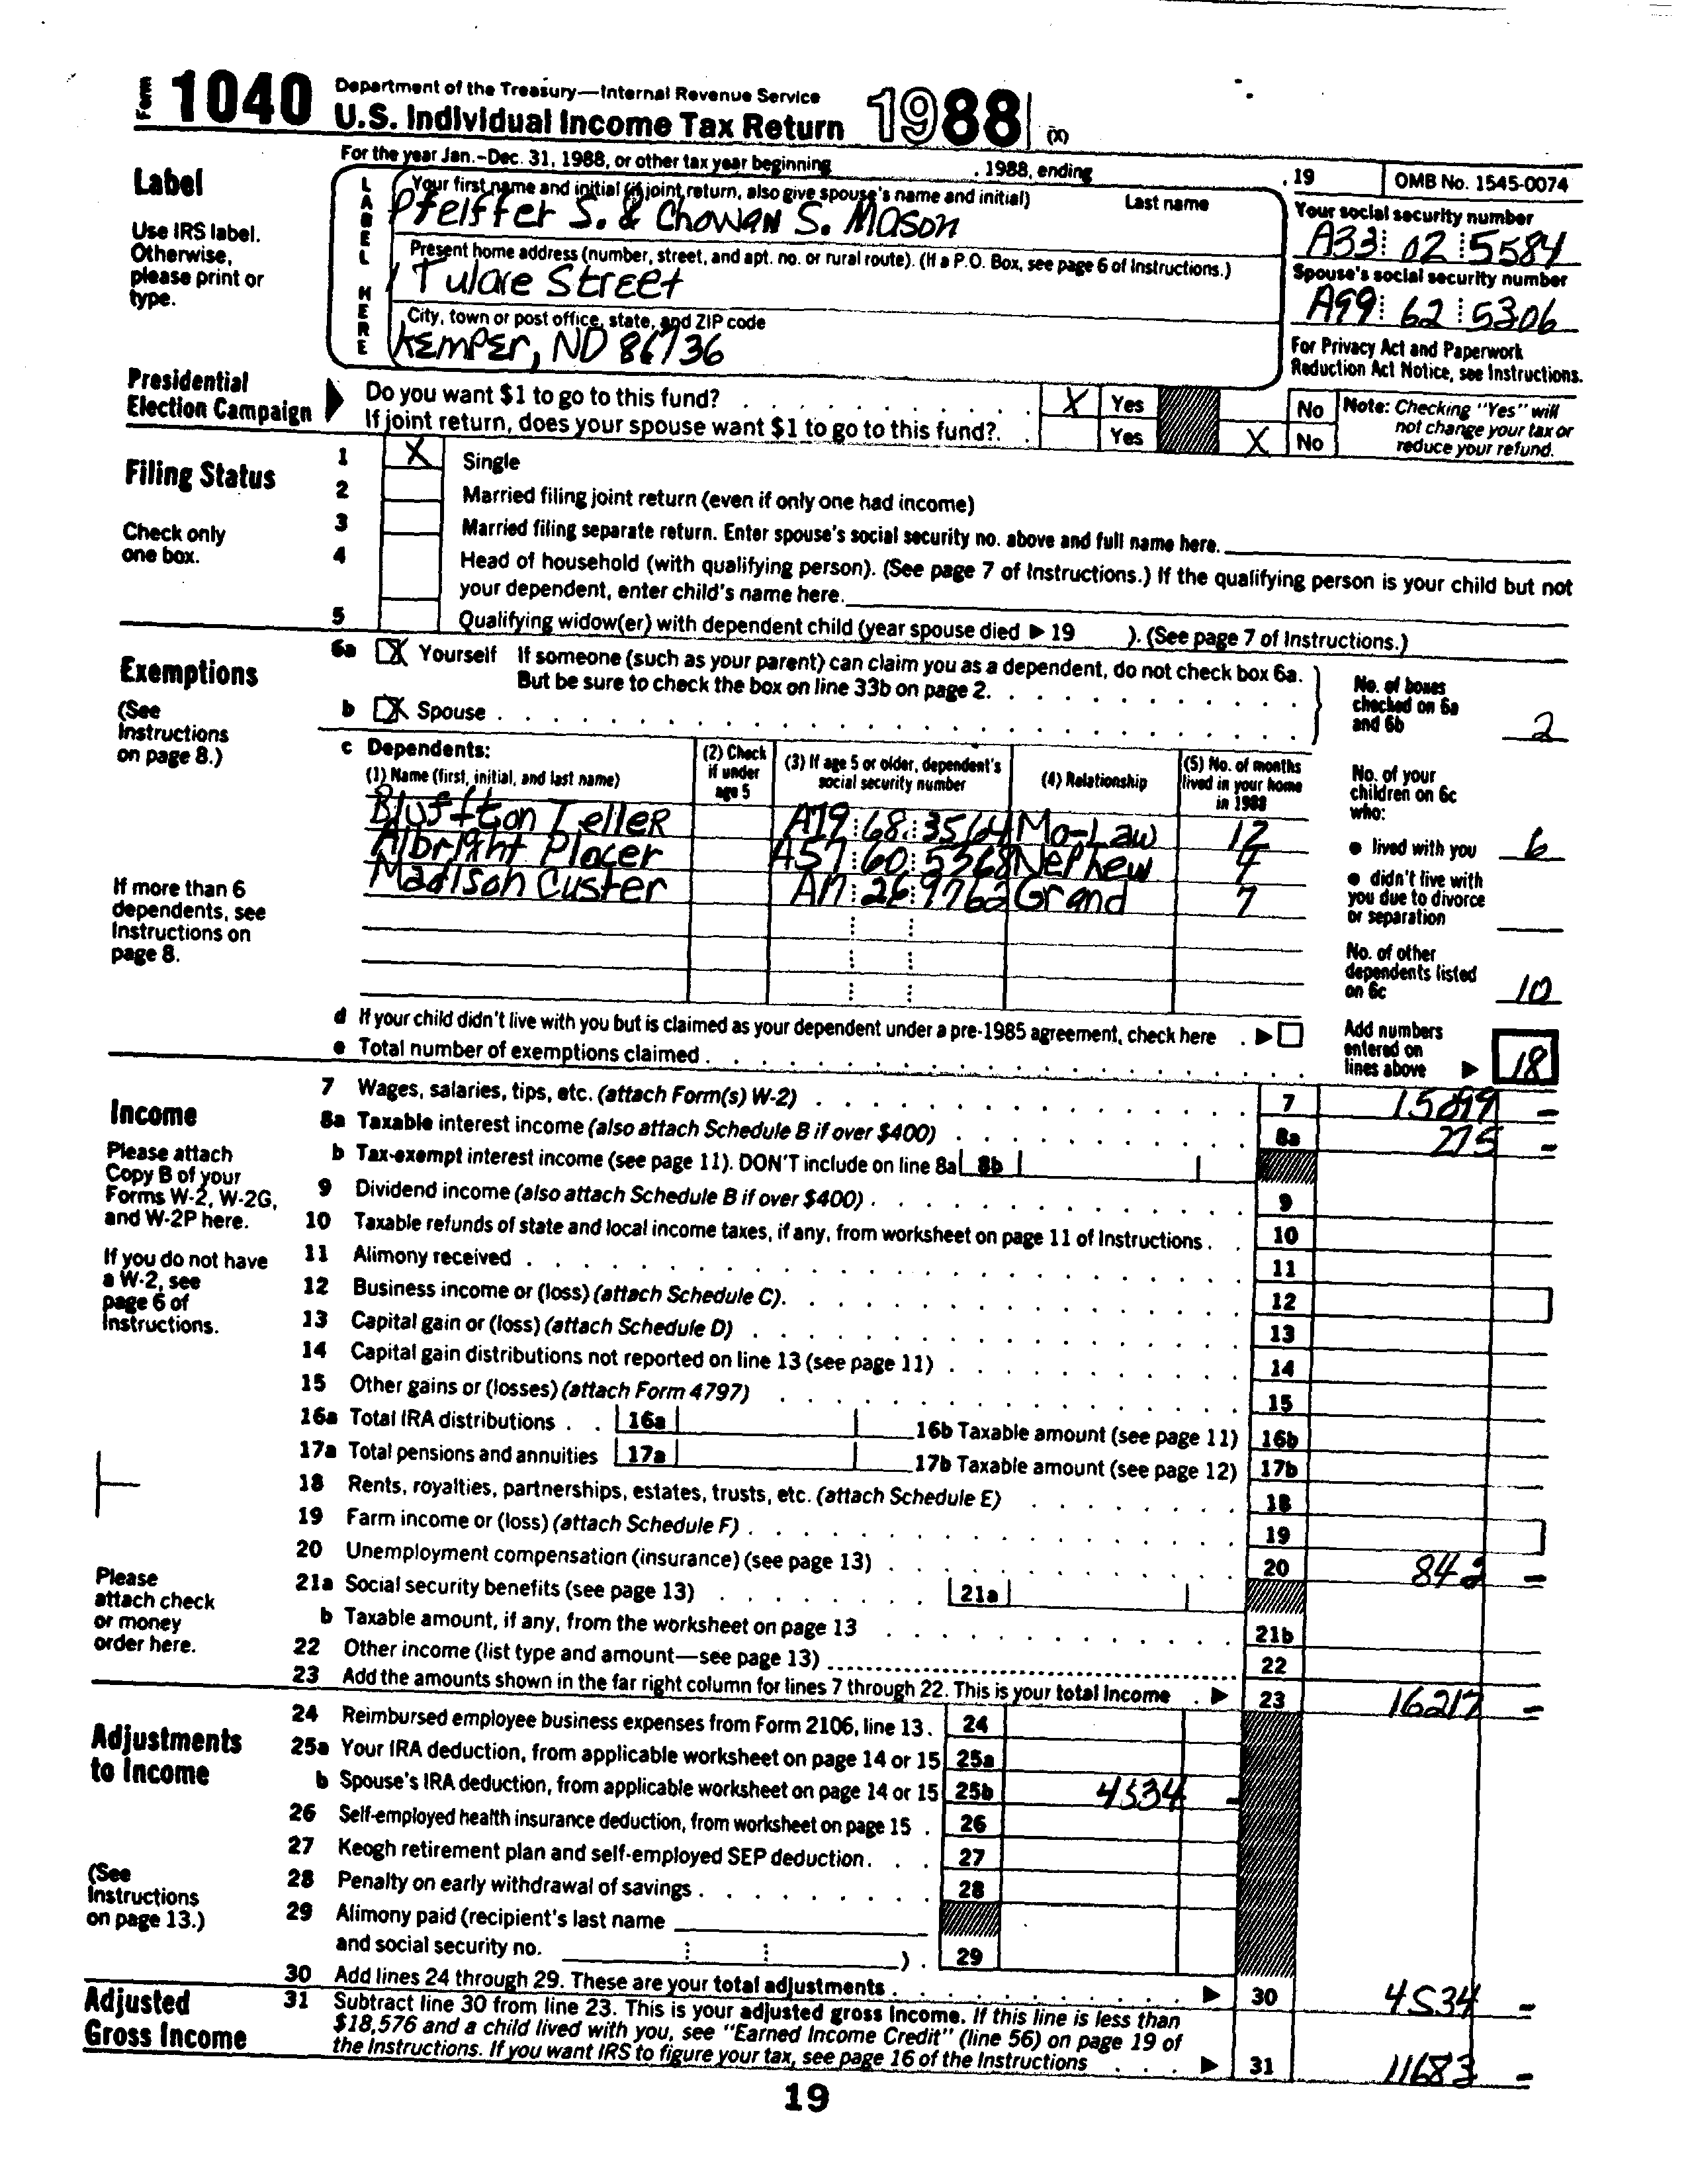 Form 1040 Department of the Treasury—Internal Revenue Service
U.S. Individual Income Tax Return 1988 (X)
For the year Jan.-Dec. 31, 1988, or other tax year beginning , 1988, ending , 19 OMB No. 1545-0074
Label
Use IRS label. Otherwise, please print or type.
LABEL HERE
Your first name and initial (if joint return, also give spouse's name and initial) Last name
Pfeiffer S. & Chowan S. Mason
Your social security number
A33 02 5584
Present home address (number, street, and apt. no. or rural route). (If a P.O. Box, see page 6 of Instructions.)
1 Tulare Street
Spouse's social security number
A99 62 5306
City, town or post office, state, and ZIP code
Kemper, ND 86736
For Privacy Act and Paperwork Reduction Act Notice, see Instructions.
Presidential Election Campaign
Do you want $1 to go to this fund? X Yes No
If joint return, does your spouse want $1 to go to this fund? Yes X No
Note: Checking "Yes" will not change your tax or reduce your refund.
Filing Status
Check only one box.
1 X Single
2 Married filing joint return (even if only one had income)
3 Married filing separate return. Enter spouse's social security no. above and full name here.
4 Head of household (with qualifying person). (See page 7 of Instructions.) If the qualifying person is your child but not
your dependent, enter child's name here.
5 Qualifying widow(er) with dependent child (year spouse died ▶ 19 ). (See page 7 of Instructions.)
Exemptions
(See Instructions on page 8.)
6a X Yourself If someone (such as your parent) can claim you as a dependent, do not check box 6a.
But be sure to check the box on line 33b on page 2.
b X Spouse
No. of boxes checked on 6a and 6b 2
c Dependents:
(1) Name (first, initial, and last name) (2) Check if under age 5 (3) If age 5 or older, dependent's social security number (4) Relationship (5) No. of months lived in your home in 1988
Bluffton Teller A19 68 3564 Mo-Law 12
Albright Placer A57 60 5368 Nephew
Madison Custer 26 9762 Grand 7
If more than 6 dependents, see Instructions on page 8.
No. of your children on 6c who:
● lived with you 6
● didn't live with you due to divorce or separation
No. of other dependents listed on 6c 10
d If your child didn't live with you but is claimed as your dependent under a pre-1985 agreement, check here ▶
e Total number of exemptions claimed
Add numbers entered on lines above ▶ 18
Income
Please attach Copy B of your Forms W-2, W-2G, and W-2P here.
If you do not have a W-2, see page 6 of Instructions.
Please attach check or money order here.
7 Wages, salaries, tips, etc. (attach Form(s) W-2) 7 –
8a Taxable interest income (also attach Schedule B if over $400) 8a 275 –
b Tax-exempt interest income (see page 11). DON'T include on line 8a 8b
9 Dividend income (also attach Schedule B if over $400) 9
10 Taxable refunds of state and local income taxes, if any, from worksheet on page 11 of Instructions 10
11 Alimony received 11
12 Business income or (loss) (attach Schedule C) 12
13 Capital gain or (loss) (attach Schedule D) 13
14 Capital gain distributions not reported on line 13 (see page 11) 14
15 Other gains or (losses) (attach Form 4797) 15
16a Total IRA distributions 16a 16b Taxable amount (see page 11) 16b
17a Total pensions and annuities 17a 17b Taxable amount (see page 12) 17b
18 Rents, royalties, partnerships, estates, trusts, etc. (attach Schedule E) 18
19 Farm income or (loss) (attach Schedule F) 19
20 Unemployment compensation (insurance) (see page 13) 20 842 –
21a Social security benefits (see page 13) 21a
b Taxable amount, if any, from the worksheet on page 13 21b
22 Other income (list type and amount—see page 13) 22
23 Add the amounts shown in the far right column for lines 7 through 22. This is your total income ▶ 23 16217 –
Adjustments to Income
(See Instructions on page 13.)
24 Reimbursed employee business expenses from Form 2106, line 13. 24
25a Your IRA deduction, from applicable worksheet on page 14 or 15 25a
b Spouse's IRA deduction, from applicable worksheet on page 14 or 15 25b 4534 –
26 Self-employed health insurance deduction, from worksheet on page 15 26
27 Keogh retirement plan and self-employed SEP deduction 27
28 Penalty on early withdrawal of savings 28
29 Alimony paid (recipient's last name
and social security no. ) 29
30 Add lines 24 through 29. These are your total adjustments ▶ 30 4534 –
Adjusted Gross Income
31 Subtract line 30 from line 23. This is your adjusted gross income. If this line is less than
$18,576 and a child lived with you, see "Earned Income Credit" (line 56) on page 19 of
the Instructions. If you want IRS to figure your tax, see page 16 of the Instructions ▶ 31 11683 –
19